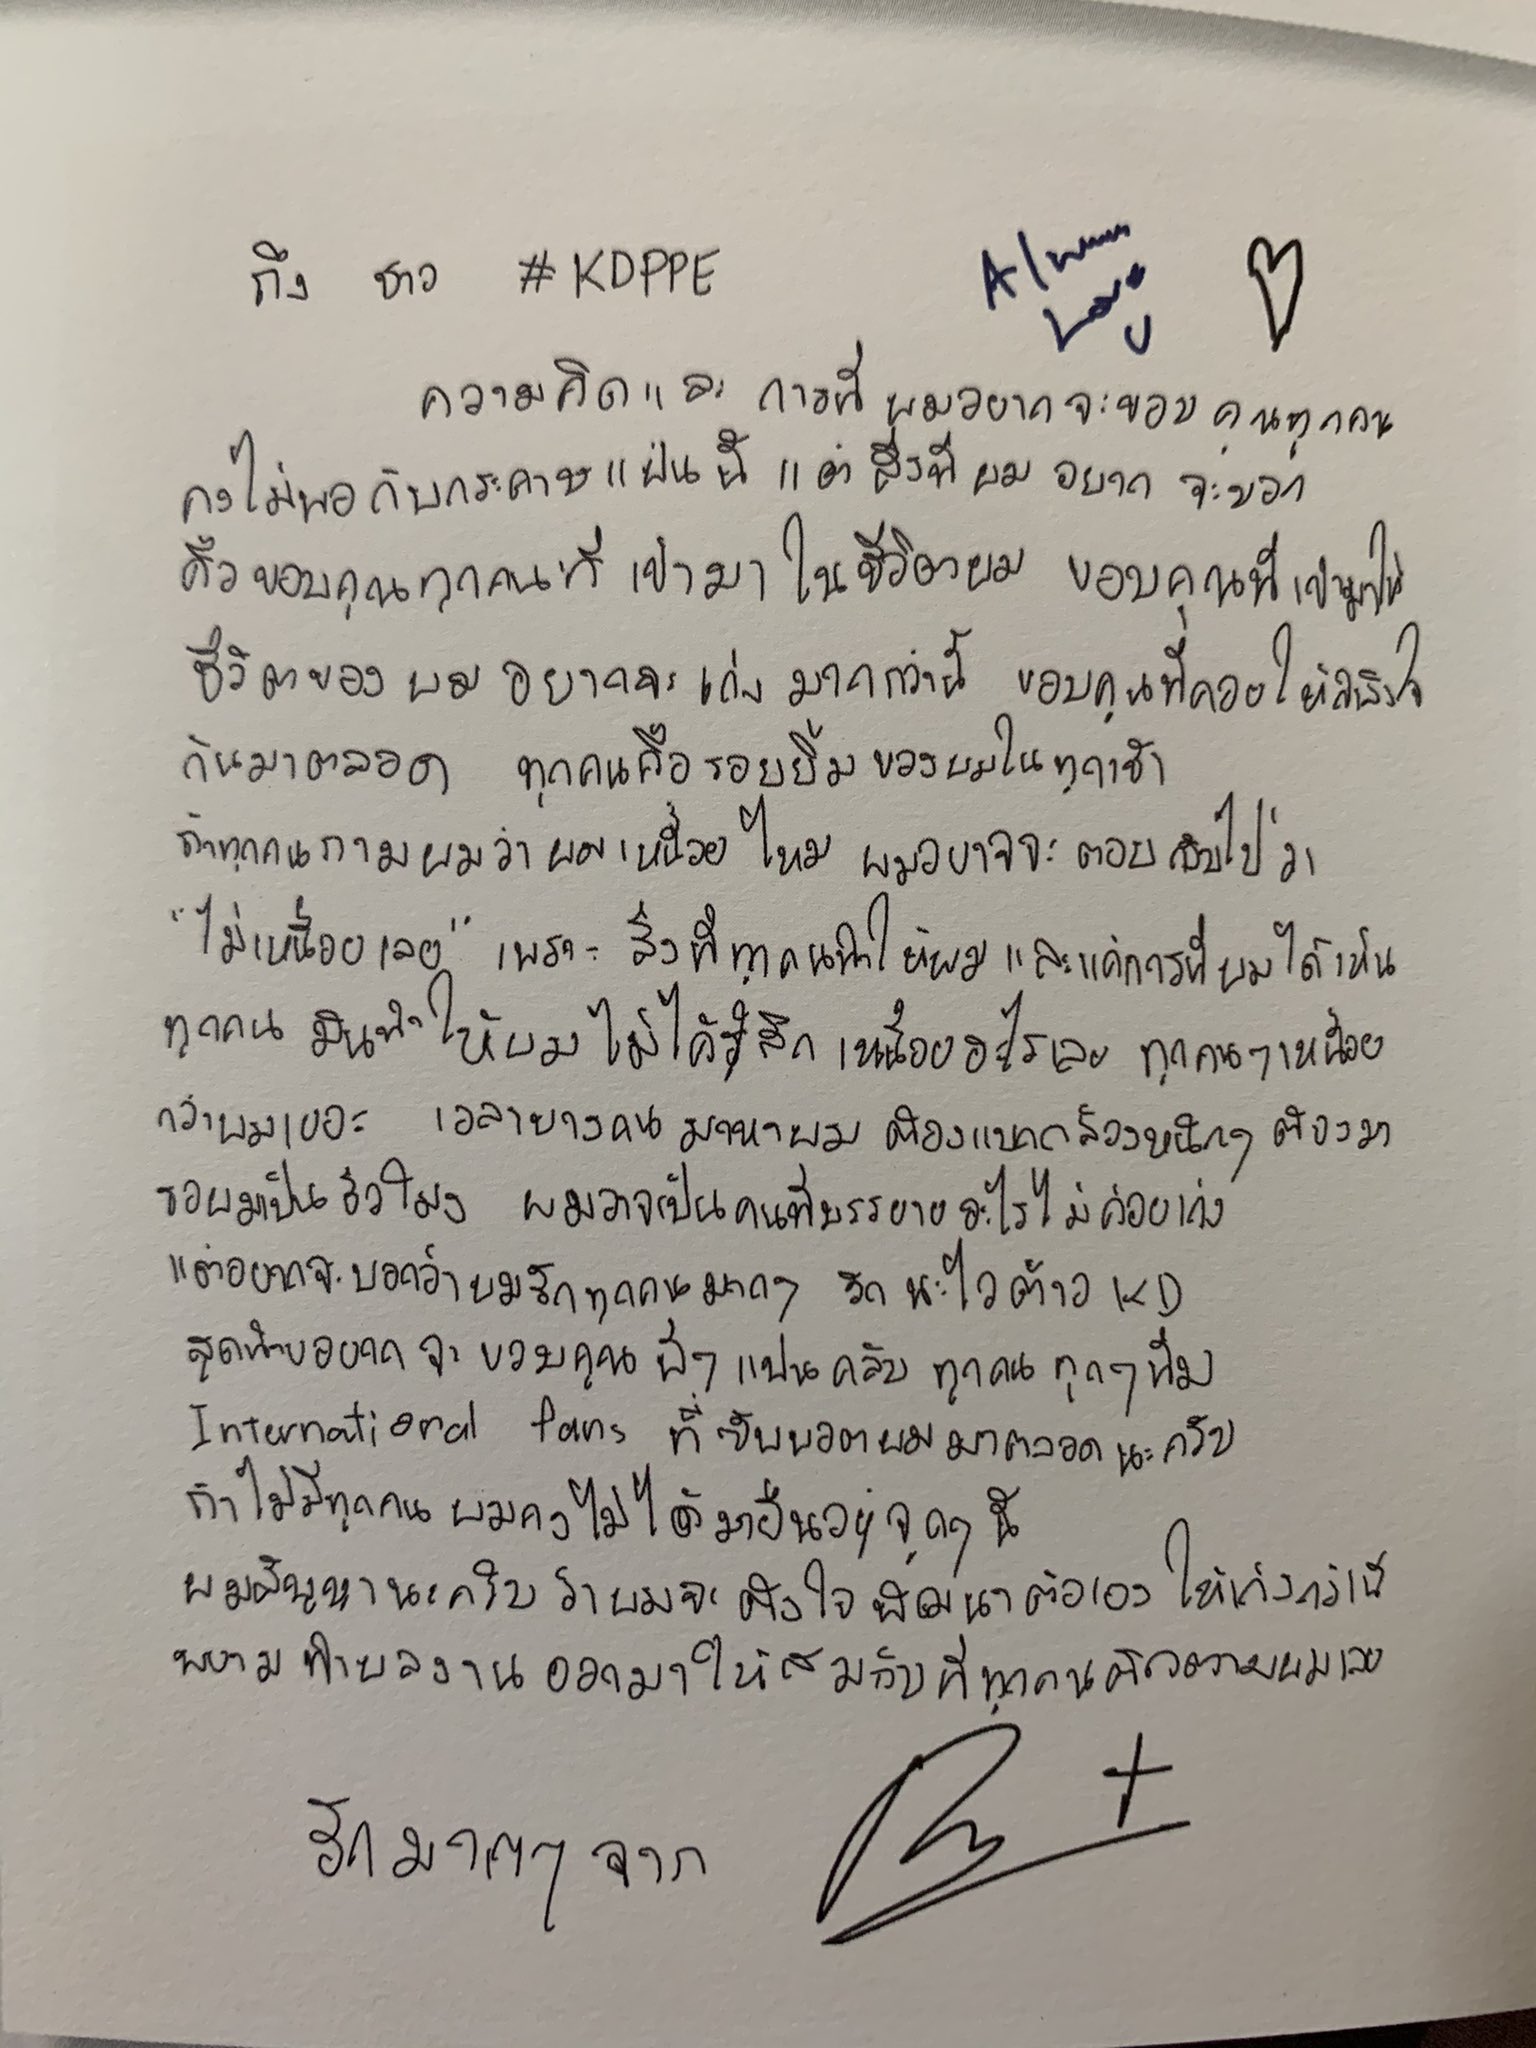 ถึง ชาว #KDPPE
Always
Love
U
ความคิดและ การที่ ผมอยากจะขอบคุณทุกคน
คงไม่พอกับกระดาษแผ่นนี้ แต่สิ่งที่ผม อยาก จะบอก
คือขอบคุณทุกคนที่ เข้ามา ในชีวิตผม ขอบคุณที่เข้ามาให้
ชีวิตของ ผม อยากจะ เก่ง มากกว่านี้ ขอบคุณที่คอยให้กำลังใจ
กันมาตลอด ทุกคนคือรอยยิ้มของผมในทุกเช้า
ถ้าทุกคนถามผมว่า ผมเหนื่อย ไหม ผมอยาจจะ ตอบกลับไปว่า
"ไม่เหนื่อยเลย" เพราะ สิ่งที่ทุกคนทำให้ผม และแค่การที่ผมได้เห็น
ทุกคน มันทำให้ผมไม่ได้รู้สึก เหนื่อยอะไรเลย ทุกคนๆเหนื่อย
กว่าผมเยอะ เวลาบางคน มาหาผม ต้องแบกกล้องหนักๆ ต้องมา
รอผมเป็น ชั่วโมง ผมอาจเป็นคนที่บรรยาย อะไรไม่ค่อยเก่ง
แต่อยากจะบอกว่า ผมรักทุกคนมากๆ รัก นะไอต้าว KD
สุดท้ายอยาก จะ ขอบคุณ พี่ๆ แฟนคลับ ทุกคน ทุกๆทีม
International fans ที่ซัพพอตผมมาตลอดนะครับ
ถ้าไม่มีทุกคน ผมคงไม่ได้มายืนอยู่ จุดๆนี้
ผมสัญหานะครับ ว่าผมจะ ตั้งใจ พัฒนาตัวเอง ให้เก่งกว่านี้
พยามทำผลงาน ออกมาให้สมกับที่ทุกคนติดตามผมเลย
รักมากๆๆ จาก